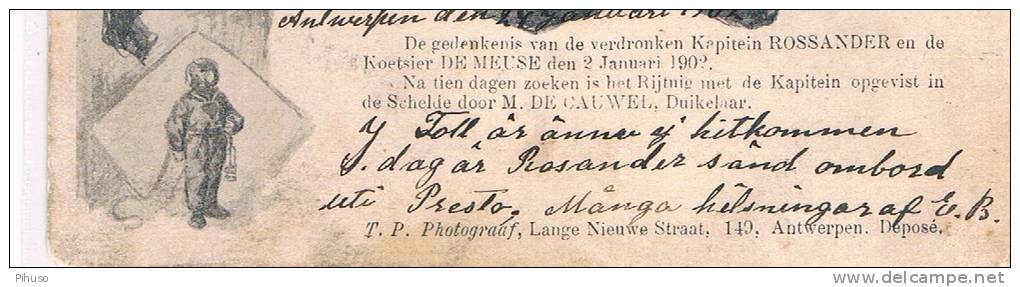 Antwerpen den 24 Januari 1902
De gedenkenis van de verdronken Kapitein ROSSANDER en de
Koetsier DE MEUSE den 2 Januari 1902.
Na tien dagen zoeken is het Rijtuig met de Kapitein opgevist in
de Schelde door M. DE CAUWEL, Duikelaar.
Toll är ännu ej hitkommen
I dag är Rosander sänd ombord
uti Presto. Många helsningar af E. B.
T. P. Photograaf, Lange Nieuwe Straat, 149, Antwerpen. Déposé.
Pihuso
delcampe.net